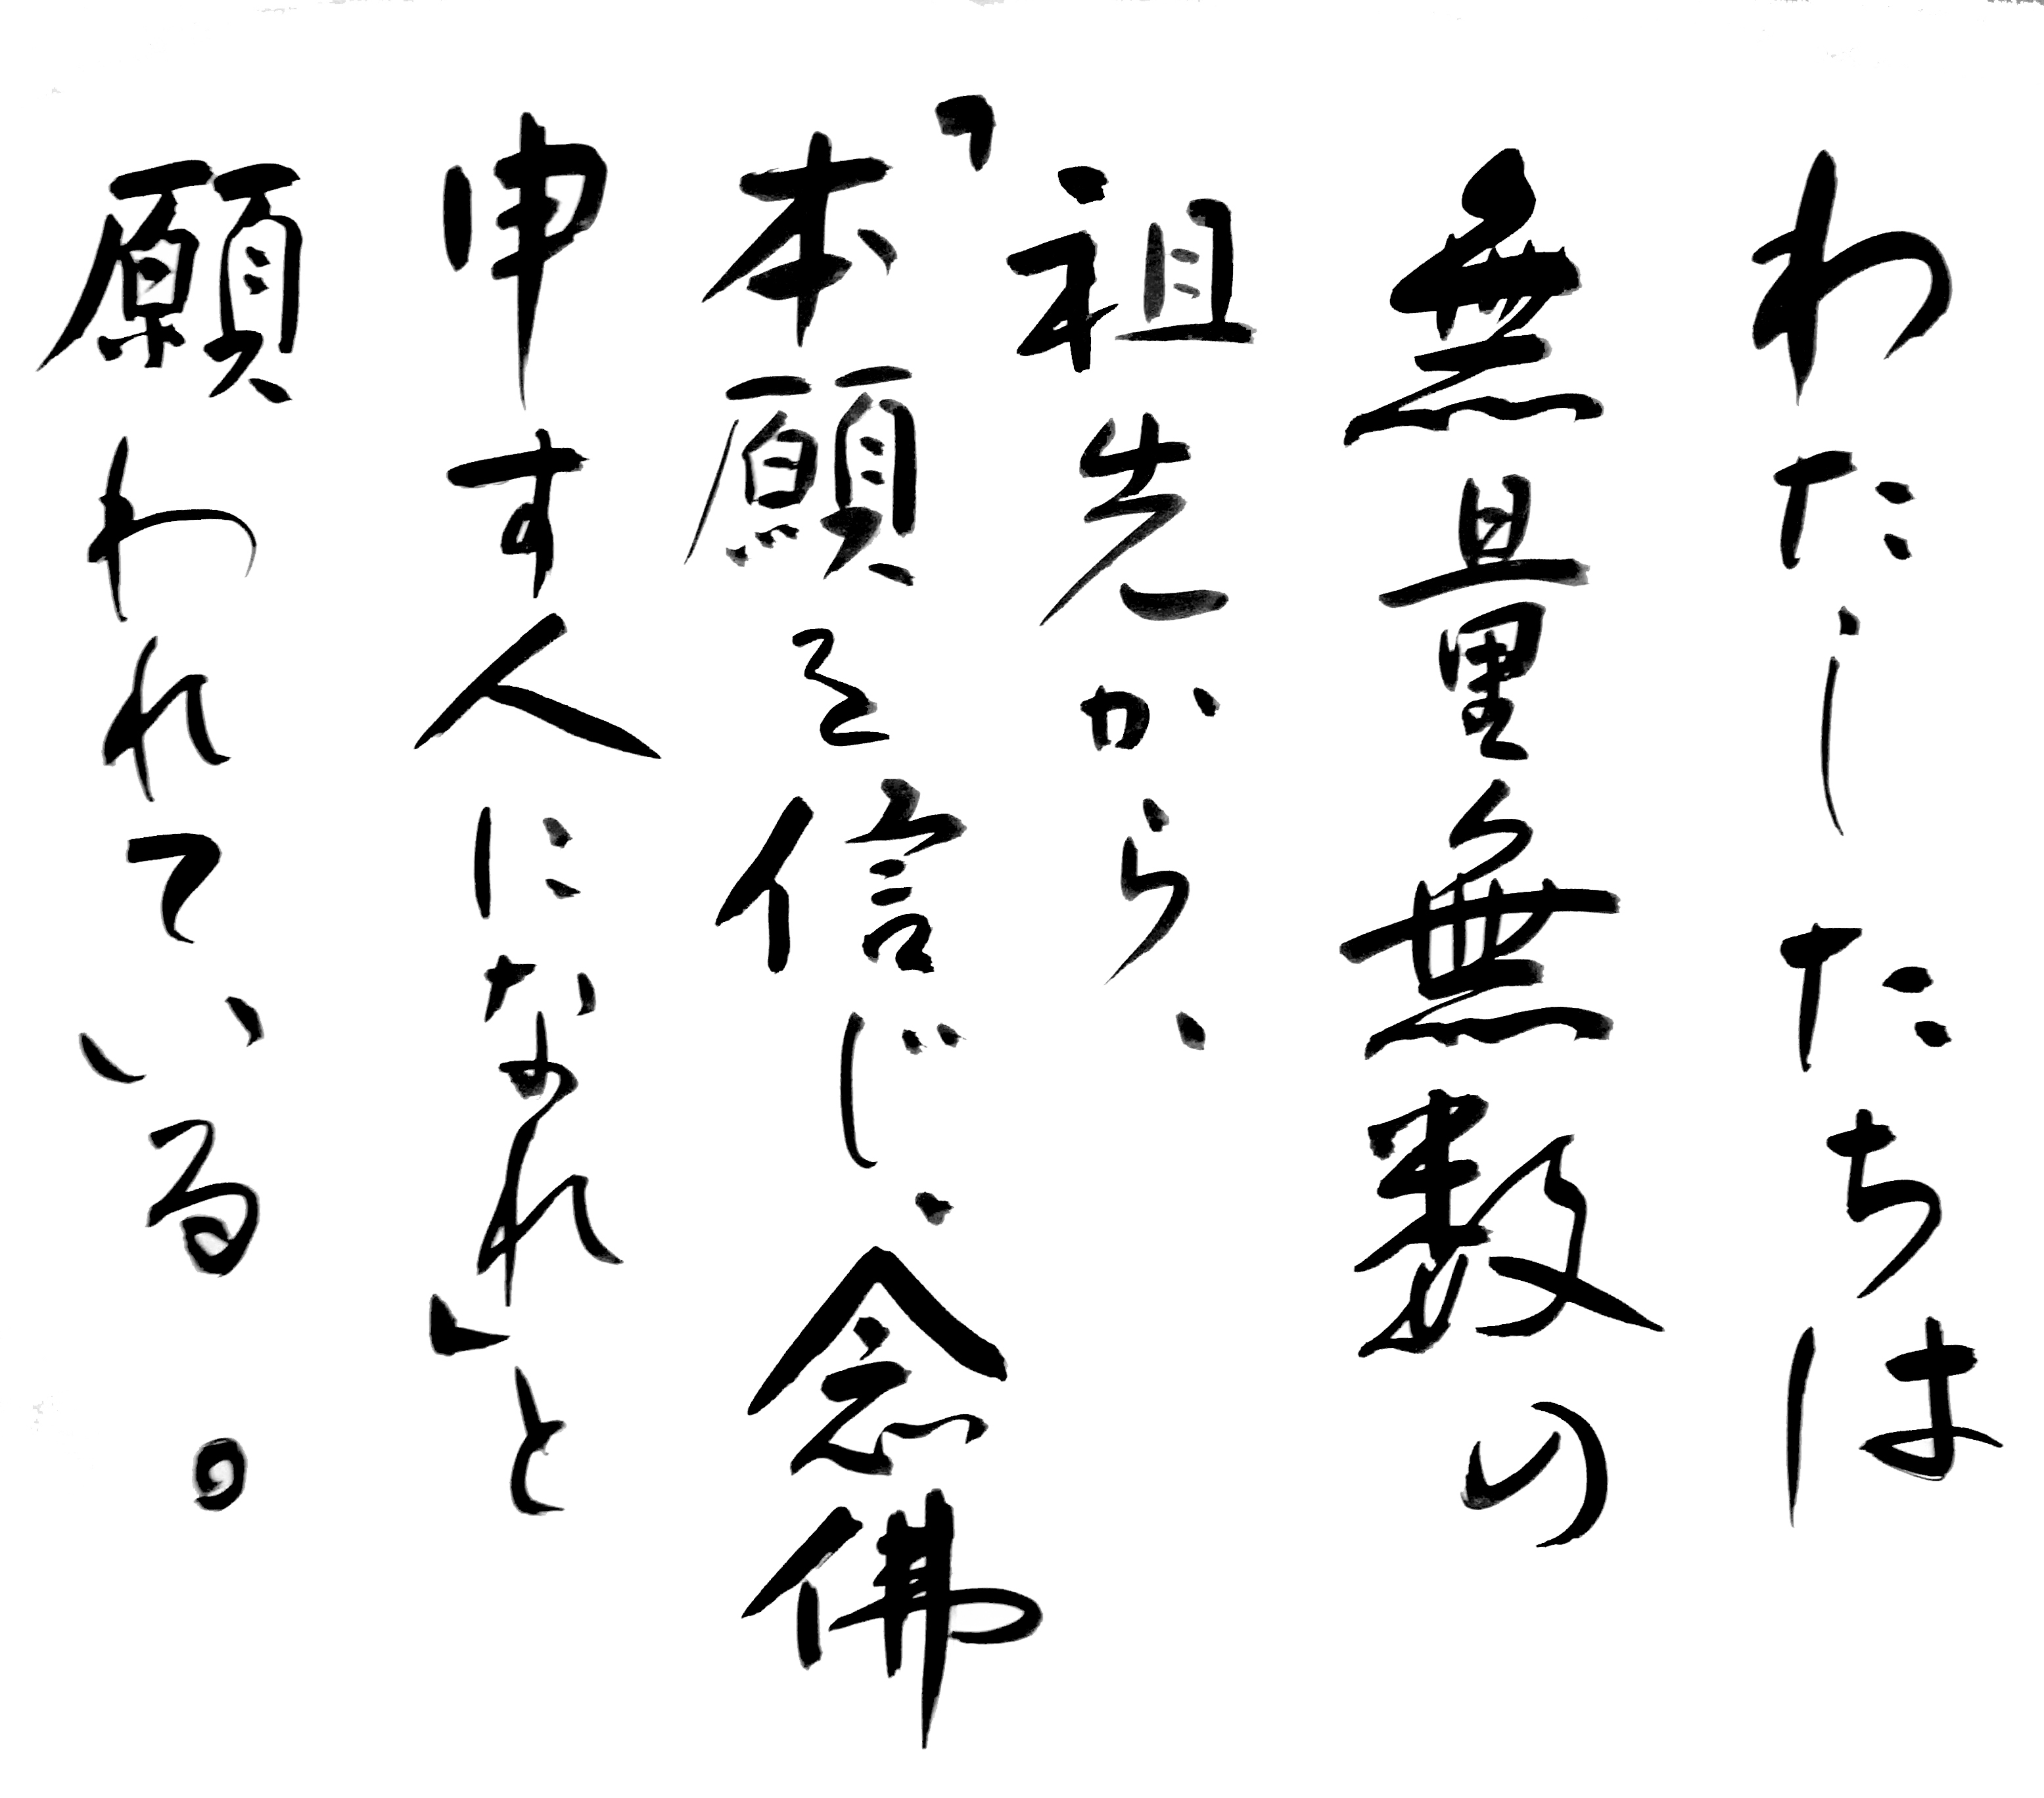 わたしたちは
無量無数の
祖先から、
「本願を信じ、念佛
申す人になれ」と
願われている。